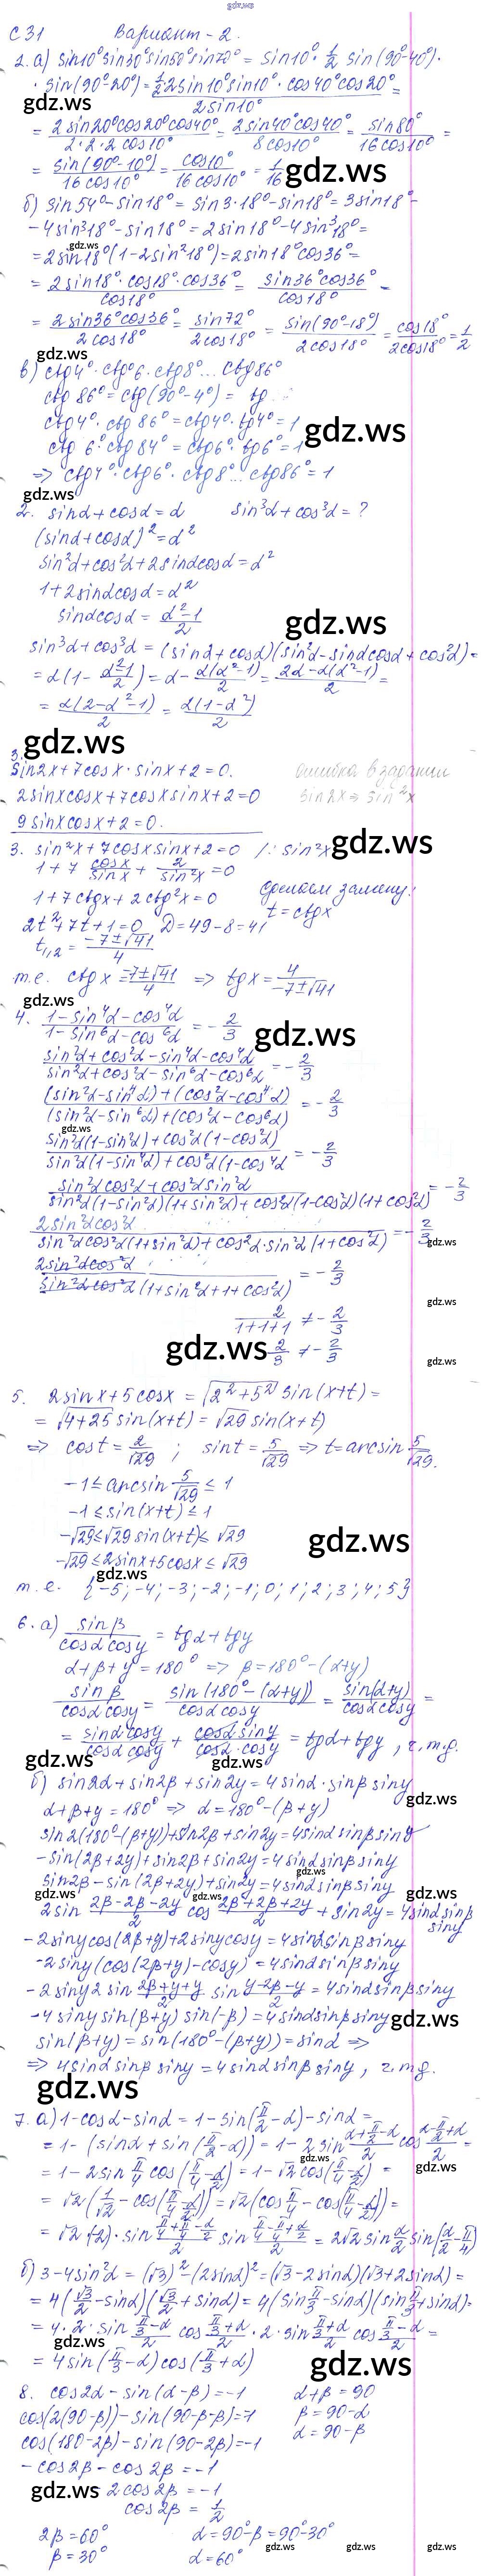 gdz.ws
С 31 Вариант - 2.
1. а) sin10° sin30° sin50° sin70° = sin10° · 1/2 sin(90°-40°) ·
· sin(90°-20°) = 1/2 2sin10° sin10° · cos40° cos20° / 2sin10° =
gdz.ws
= 2sin20°cos20°cos40° / 2·2·2 cos10° = 2sin40°cos40° / 8cos10° = sin80° / 16cos10° =
= sin(90°-10°) / 16cos10° = cos10° / 16cos10° = 1/16
gdz.ws
б) sin54° - sin18° = sin3·18° - sin18° = 3sin18° -
- 4sin³18° - sin18° = 2sin18° - 4sin³18° =
gdz.ws
= 2sin18°(1-2sin²18°) = 2sin18°cos36° =
= 2sin18°·cos18°·cos36° / cos18° = sin36°cos36° / cos18° =
= 2sin36°cos36° / 2cos18° = sin72° / 2cos18° = sin(90°-18°) / 2cos18° = cos18° / 2cos18° = 1/2
gdz.ws
в) ctg4°·ctg°6·ctg8°... ctg86°
ctg86° = ctg(90°-4°) = tg
ctg4°·ctg86° = ctg4°·tg4° = 1
gdz.ws
ctg6°·ctg84° = ctg6°·tg6° = 1
=> ctg4°·ctg6°·ctg8°... ctg86° = 1
gdz.ws
2. sinα + cosα = α sin³α + cos³α = ?
(sinα + cosα)² = α²
sin²α + cos²α + 2sinαcosα = α²
1 + 2sinαcosα = α²
sinαcosα = α²-1 / 2
gdz.ws
sin³α + cos³α = (sinα + cosα)(sin²α - sinαcosα + cos²α) =
= α(1 - α²-1 / 2) = α - α(α²-1) / 2 = 2α - α(α²-1) / 2 =
= α(2-α²-1) / 2 = α(1-α²) / 2
gdz.ws
3.
sin2x + 7cosx·sinx + 2 = 0. ошибка в задании
2sinxcosx + 7cosxsinx + 2 = 0 sin2x => sin²x
9sinxcosx + 2 = 0.
3. sin²x + 7cosxsinx + 2 = 0 /: sin²x
gdz.ws
1 + 7 cosx / sinx + 2 / sin²x = 0
1 + 7ctgx + 2ctg²x = 0 сделаем замену:
2t² + 7t + 1 = 0 D = 49 - 8 = 41 t = ctgx
t1,2 = -7±√41 / 4
т.е. ctgx = -7±√41 / 4 => tgx = 4 / -7±√41
gdz.ws
4. 1-sin⁴α-cos⁴α / 1-sin⁶α-cos⁶α = -2/3
gdz.ws
sin²α+cos²α-sin⁴α-cos⁴α / sin²α+cos²α-sin⁶α-cos⁶α = -2/3
(sin²α-sin⁴α)+(cos²α-cos⁴α) / (sin²α-sin⁶α)+(cos²α-cos⁶α) = -2/3
gdz.ws
sin²α(1-sin²α)+cos²α(1-cos²α) / sin²α(1-sin⁴α)+cos²α(1-cos⁴α = -2/3
sin²αcos²α+cos²αsin²α / sin²α(1-sin²α)(1+sin²α)+cos²α(1-cos²α)(1+cos²α) = -2/3
2sin²αcos²α / sin²αcos²α(1+sin²α)+cos²α·sin²α(1+cos²α) = -2/3
gdz.ws
2sin²αcos²α / sin²αcos²α(1+sin²α+1+cos²α) = -2/3
gdz.ws
2 / 1+1+1 ≠ -2/3
gdz.ws
2/3 ≠ -2/3
gdz.ws
5. 2sinx + 5cosx = √2²+5² sin(x+t) =
= √4+25 sin(x+t) = √29 sin(x+t)
=> cost = 2/√29 ; sint = 5/√29 => t = arcsin 5/√29.
-1 ≤ arcsin 5/√29 ≤ 1
-1 ≤ sin(x+t) ≤ 1
gdz.ws
-√29 ≤ √29 sin(x+t) ≤ √29
-√29 ≤ 2sinx+5cosx ≤ √29
gdz.ws
т.е. {-5; -4; -3; -2; -1; 0; 1; 2; 3; 4; 5}
6. а) sinβ / cosαcosγ = tgα + tgγ
α+β+γ = 180° => β = 180° - (α+γ)
sinβ / cosαcosγ = sin(180°-(α+γ)) / cosαcosγ = sin(α+γ) / cosαcosγ =
= sinαcosγ / cosαcosγ + cosαsinγ / cosα·cosγ = tgα + tgγ, ч.т.д.
gdz.ws gdz.ws
б) sin2α + sin2β + sin2γ = 4sinα·sinβsinγ
gdz.ws
α+β+γ = 180° => α = 180° - (β+γ)
sin2(180°-(β+γ)) + sin2β + sin2γ = 4sinαsinβsinγ
-sin(2β+2γ) + sin2β + sin2γ = 4sinαsinβsinγ
gdz.ws
sin2β - sin(2β+2γ) + sin2γ = 4sinαsinβsinγ
gdz.ws gdz.ws gdz.ws
2sin 2β-2β-2γ / 2 cos 2β+2β+2γ / 2 + sin2γ = 4sinαsinβ
sinγ
-2sinγcos(2β+γ) + 2sinγcosγ = 4sinαsinβsinγ
-2sinγ(cos(2β+γ) - cosγ) = 4sinαsinβsinγ
-2sinγ2sin 2β+γ+γ / 2 sin γ-2β-γ / 2 = 4sinαsinβsinγ
-4sinγsin(β+γ)sin(-β) = 4sinαsinβsinγ
gdz.ws
sin(β+γ) = sin(180°-(β+γ)) = sinα =>
=> 4sinαsinβsinγ = 4sinαsinβsinγ, ч.т.д.
gdz.ws
7. а) 1-cosα-sinα = 1-sin(π/2-α)-sinα =
= 1-(sinα+sin(π/2-α)) = 1-2sin α+π/2-α / 2 cos α-π/2+α / 2 =
gdz.ws gdz.ws
= 1-2sin π/4 cos(π/4-α/2) = 1-√2cos(π/4-α/2) =
= √2(1/√2-cos(π/4-α/2)) = √2(cos π/4-cos(π/4-α/2)) =
= √2(-2)·sin π/4+π/4-α/2 / 2 sin π/4-π/4+α/2 / 2 = 2√2 sin α/2 sin(α/2-π/4)
б) 3-4sin²α = (√3)²-(2sinα)² = (√3-2sinα)(√3+2sinα) =
= 4(√3/2-sinα)(√3/2+sinα) = 4(sin π/3-sinα)(sin π/3+sinα) =
= 4·2·sin π/3-α / 2 cos π/3+α / 2 · 2·sin π/3+α / 2 cos π/3-α / 2 =
gdz.ws
= 4sin(π/3-α)cos(π/3+α)
gdz.ws
8. cos2α - sin(α-β) = -1 α+β = 90
cos(2(90-β)) - sin(90-β-β) = -1 β = 90-α
cos(180-2β) - sin(90-2β) = -1 α = 90-β
-cos2β - cos2β = -1
gdz.ws
-2cos2β = -1
gdz.ws
cos2β = 1/2
2β = 60° α = 90°-β = 90°-30°
gdz.ws gdz.ws gdz.ws
β = 30° α = 60°